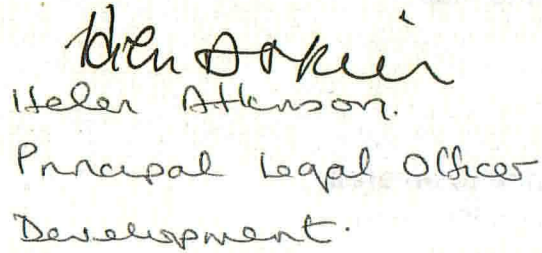 Helen Atkinson.
Principal Legal Officer
Development.